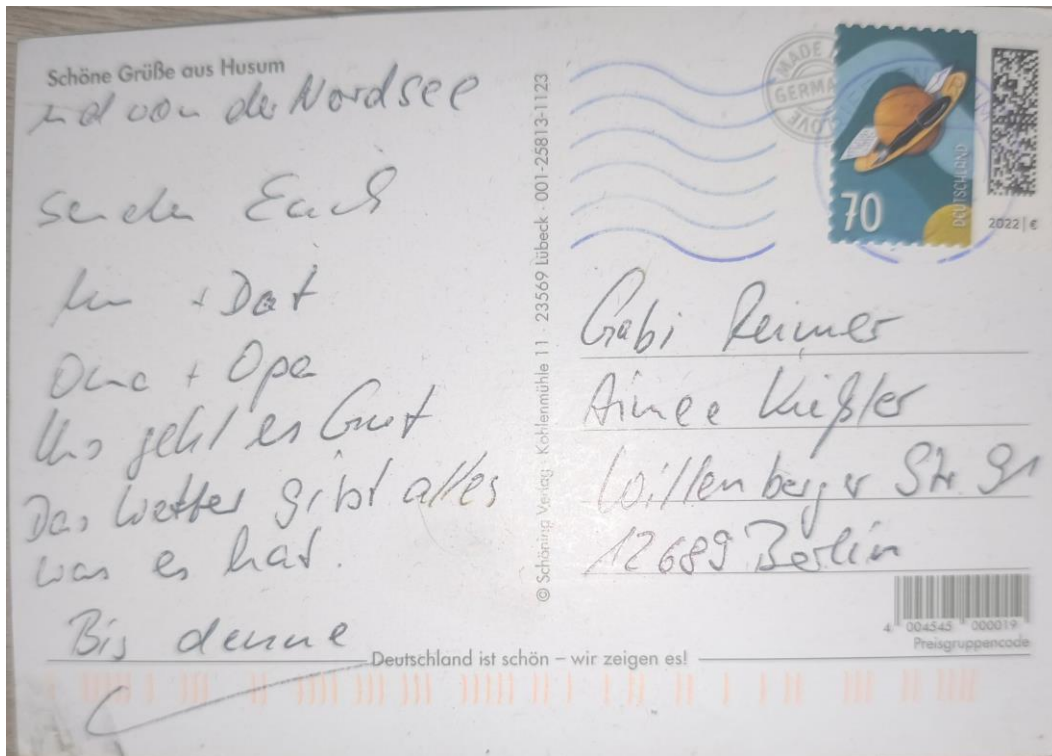 Schöne Grüße aus Husum
und von der Nordsee
senden Euch
+ Dat
Oma + Opa
Uns geht es Gut
Das Wetter gibt alles
was es hat.
Bis denne
© Schöning Verlag · Kohlenmühle 11 · 23569 Lübeck · 001-25813-1123
MADE
GERMA
LOVE
70
DEUTSCHLAND
2022 | €
Gabi Reimer
Aimee Kießler
Wittenberger Str. 91
12689 Berlin
4 004545 000019
Preisgruppencode
Deutschland ist schön – wir zeigen es!